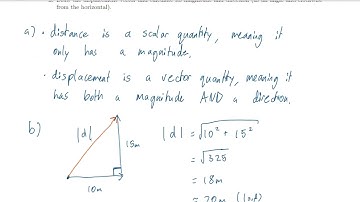 from the horizontal).
a) · distance is a scalar quantity, meaning it
only has a magnitude.
· displacement is a vector quantity, meaning it
has both a magnitude AND a direction.
b)
|d|
15m
10m
|d| = √10² + 15²
= √325
= 18m
= 20m (1sf)